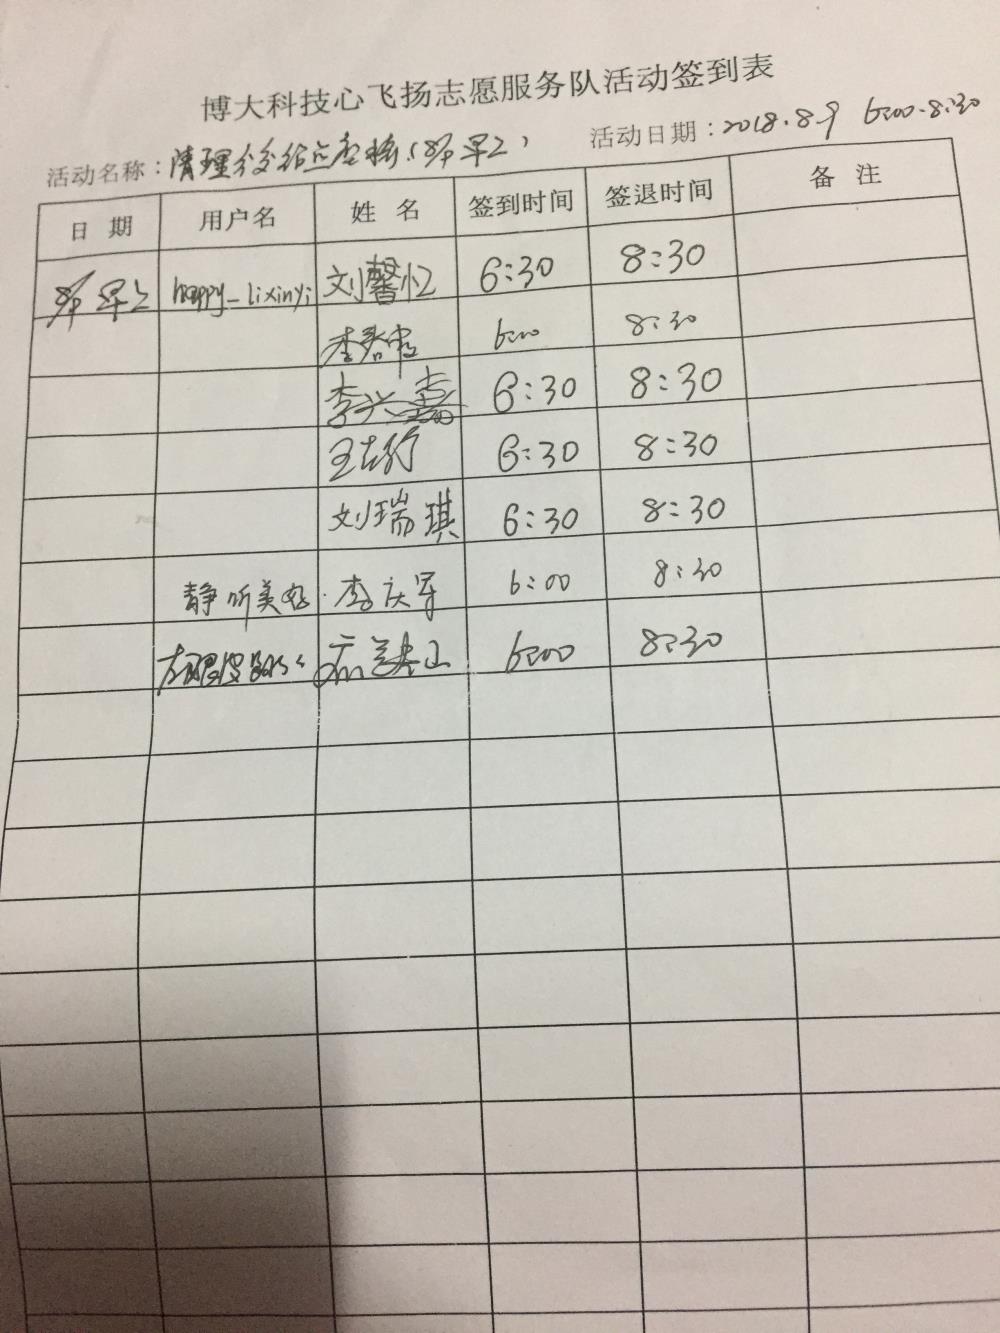 博大科技心飞扬志愿服务队活动签到表
活动名称：清理 早上） 活动日期：2018.8.9 6:00-8:30
日 期 用户名 姓 名 签到时间 签退时间 备 注
早上 happy_lixinyi 刘馨忆 6:30 8:30
李 6:00 8:30
李兴嘉 6:30 8:30
王志行 6:30 8:30
刘瑞琪 6:30 8:30
静听美好 李庆军 6:00 8:30
6:00 8:30